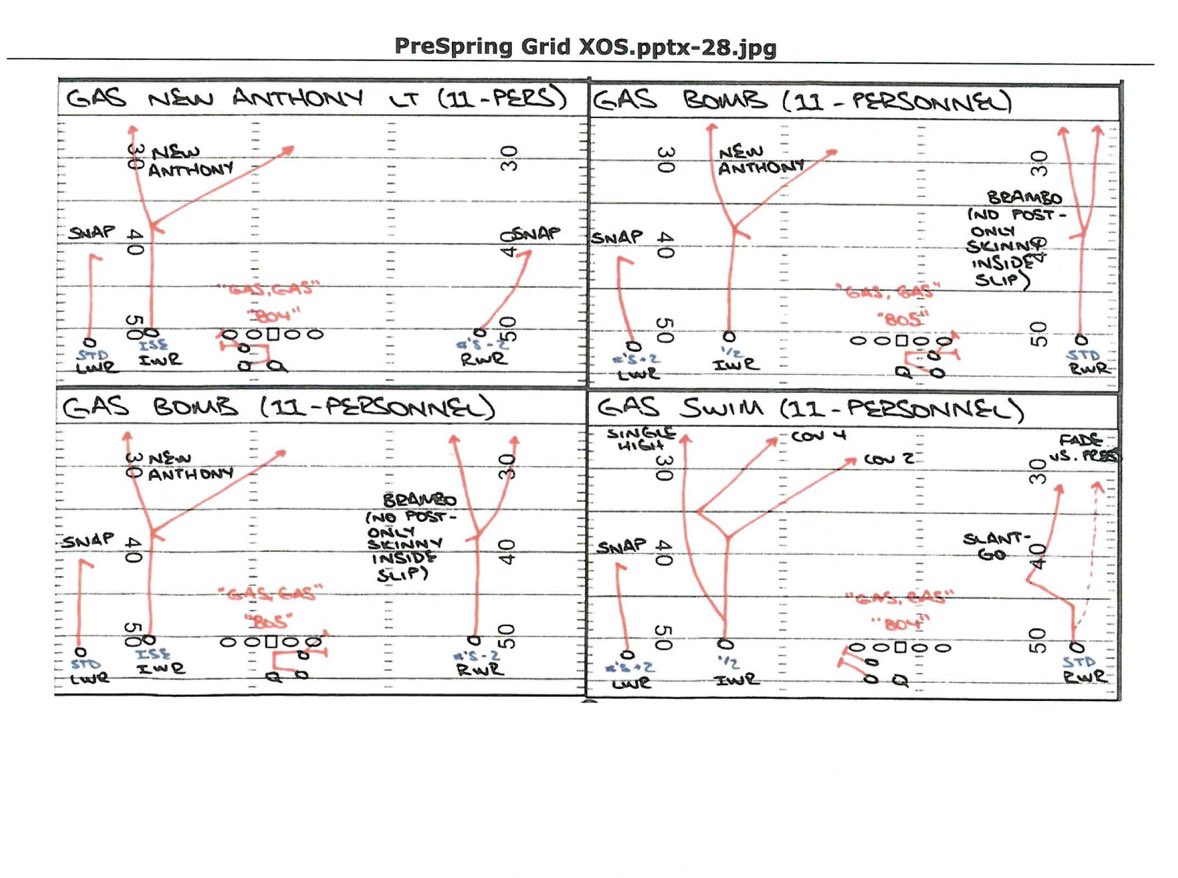 PreSpring Grid XOS.pptx-28.jpg
GAS NEW ANTHONY LT (11-PERS)
30
NEW
ANTHONY
30
SNAP
40
40
SNAP
"GAS, GAS"
"804"
50
50
STD
LWR
ISE
IWR
#'S-2
RWR
Q
GAS BOMB (11-PERSONNEL)
30
NEW
ANTHONY
30
BRAMBO
(NO POST-
ONLY
SKINNY
INSIDE
SLIP)
SNAP
40
40
"GAS, GAS"
"805"
50
50
#'S+2
LWR
1/2
IWR
STD
RWR
Q
GAS BOMB (11-PERSONNEL)
30
NEW
ANTHONY
30
BRAMBO
(NO POST-
ONLY
SKINNY
INSIDE
SLIP)
SNAP
40
40
"GAS, GAS"
"805"
50
50
STD
LWR
ISE
IWR
#'S-2
RWR
Q
GAS SWIM (11-PERSONNEL)
SINGLE
HIGH
30
COV 4
COV 2
FADE
VS. PRESS
30
SNAP
40
SLANT-
GO
40
"GAS, GAS"
"804"
50
50
#'S+2
LWR
1/2
IWR
STD
RWR
Q